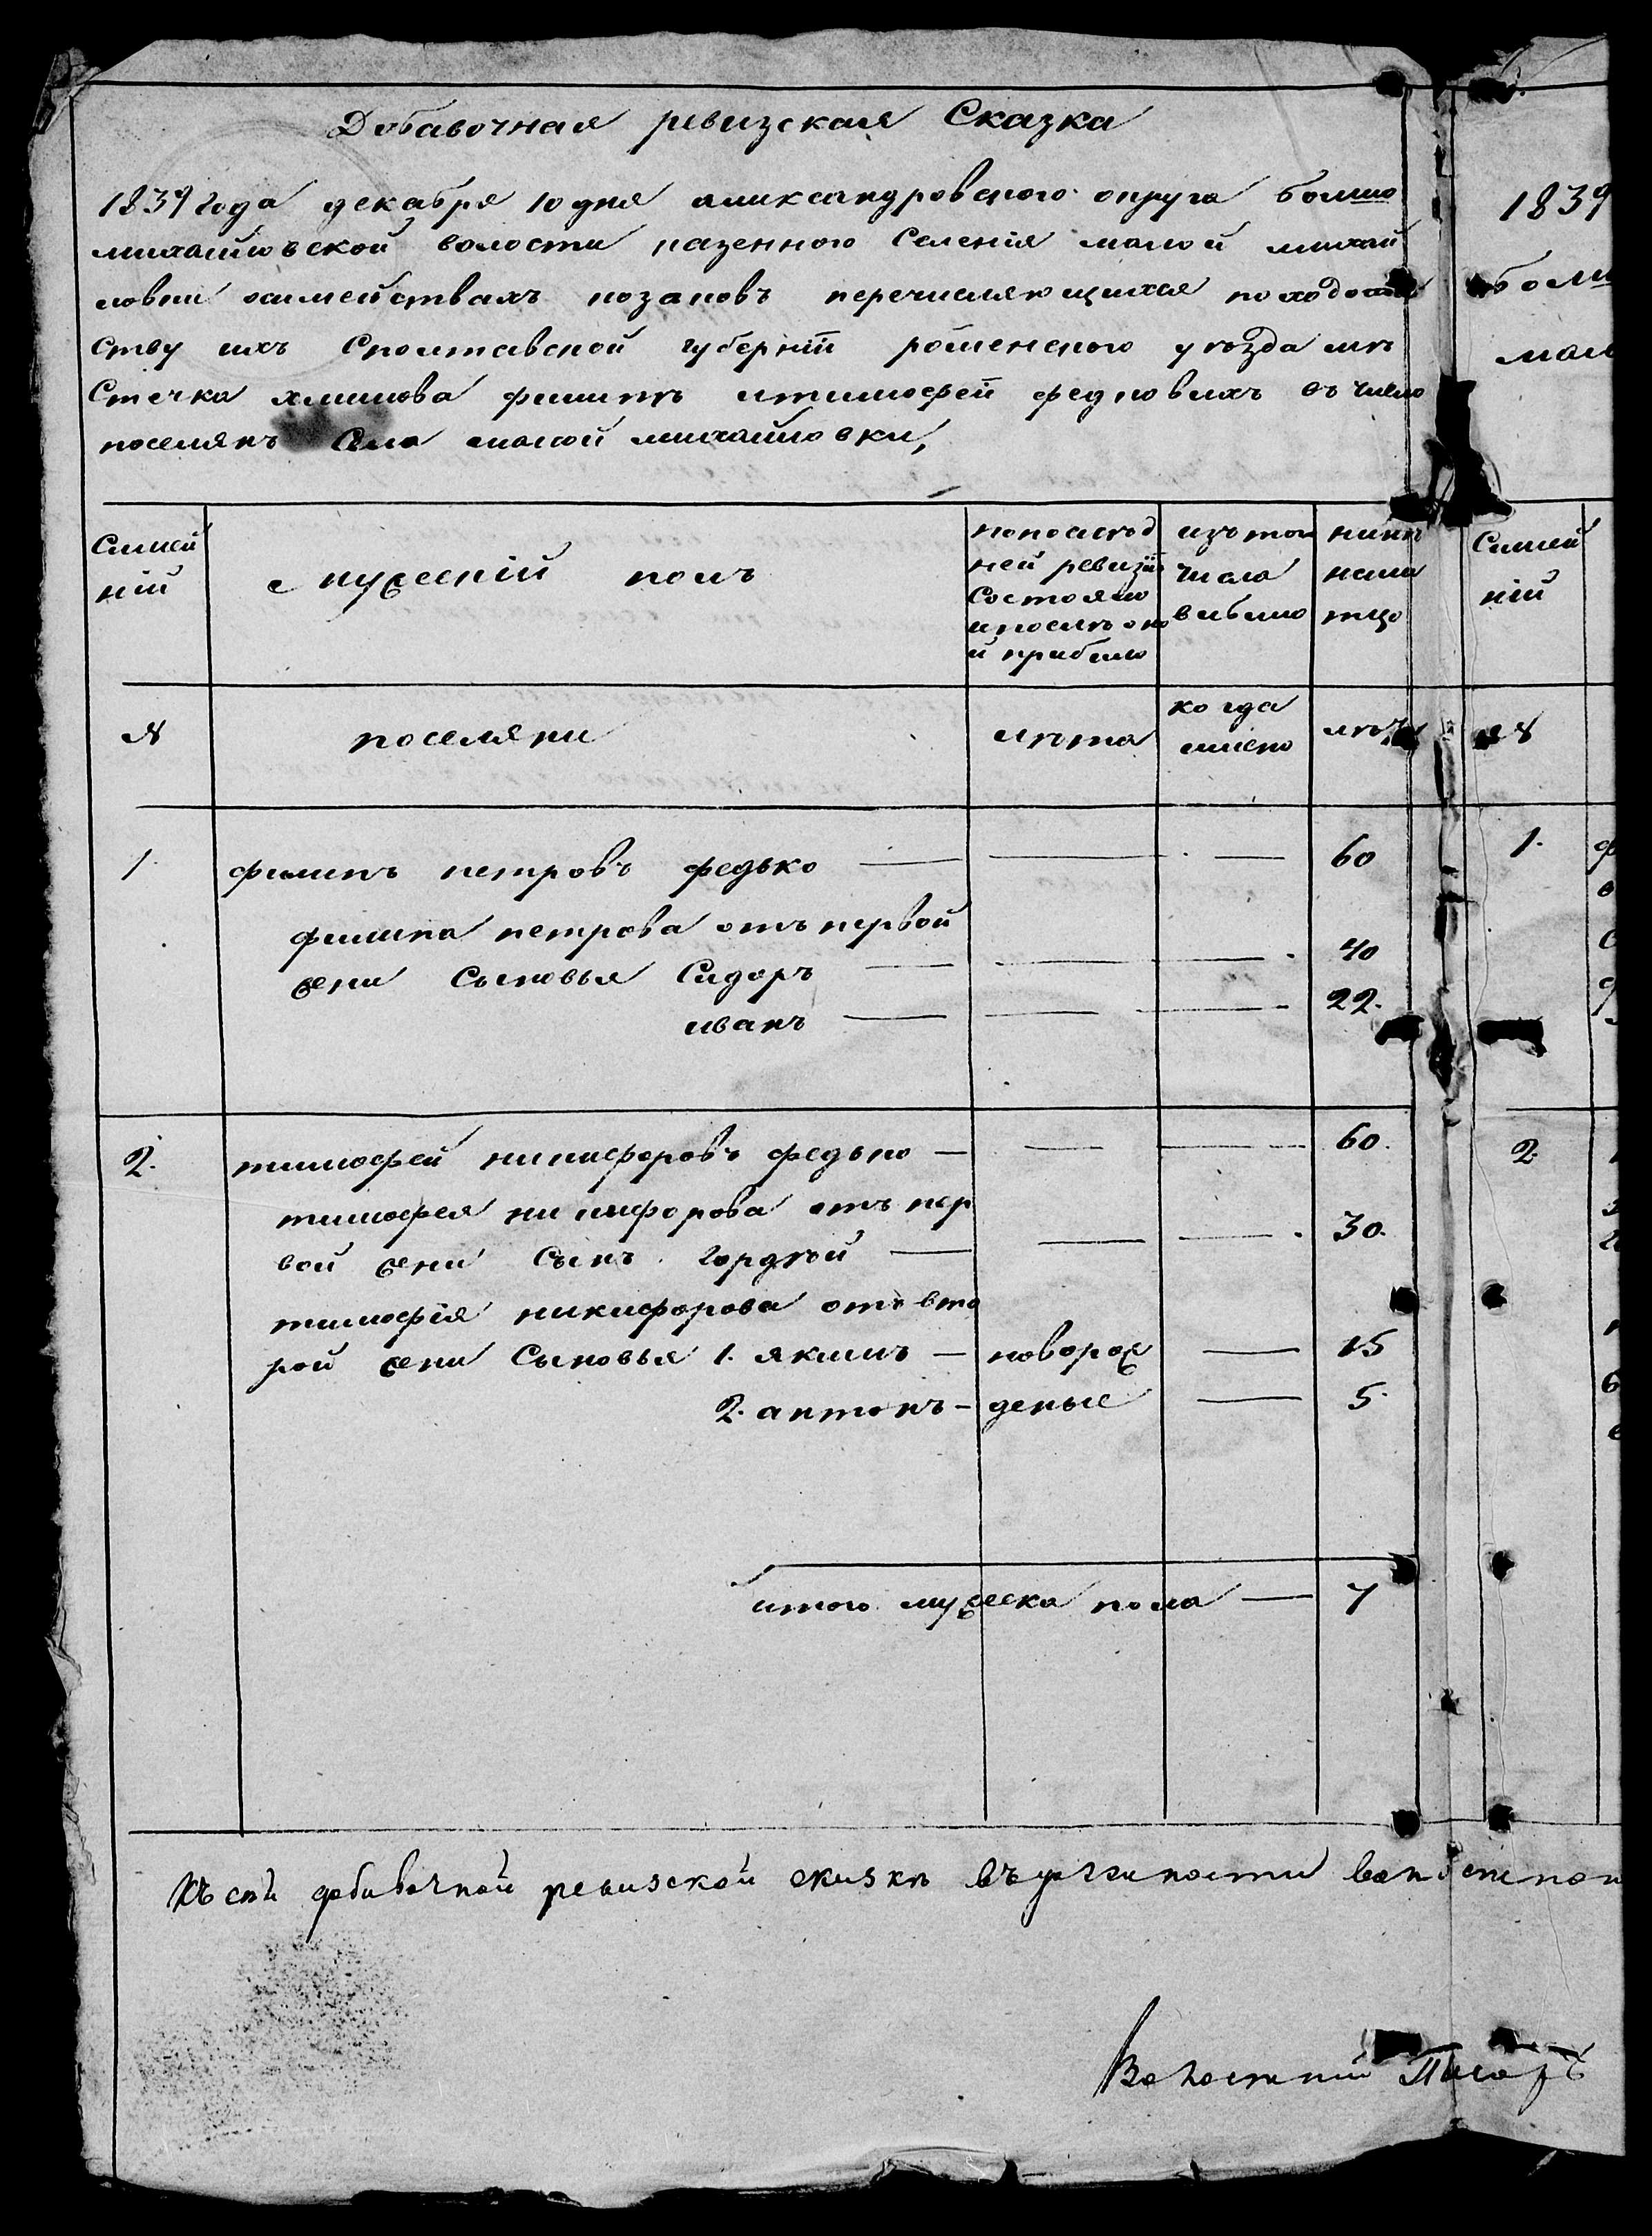 Добавочная ревизская Сказка
1839 года декабря 10 дня александровского округа больше
михайловской волости казенного Селенія малой михай
ловки осимействахъ козаковъ перечисляющихся по ходотай
Ству ихъ Сполтавской губерніи роменского уѣзда мѣ
Стечка хмилова филипъ итимофей федковихъ въ число
поселянъ Села малой михайловки,
Симей
ній
мужескій полъ
попослѣд
ней ревизіи
Состояло
ипослѣ оно
й прибыло
изъ того
числа
выбыло
нинѣ
нали
тцо
№
поселяни
лѣта
когда
имено
лѣта
1. филипъ петровъ федько — — — 60
филипа петрова отъ первой
жени Сыновья Сидоръ — — — 40
иванъ — — — 22.
2. тимофей никифоровъ федько — — — 60.
тимофея никифорова отъ пер
вой жени Сынъ гордѣй — — — 30.
тимофія никифорова отъ вто
рой жени Сыновья 1. якимъ — новорож — 15
2. антонъ — деные — 5.
итого мужеска пола — 7
Къ сей добавочной ревизской сказкѣ
Волостний Писарь
1839
больш
мало
Симей
ній
№
1.
2.